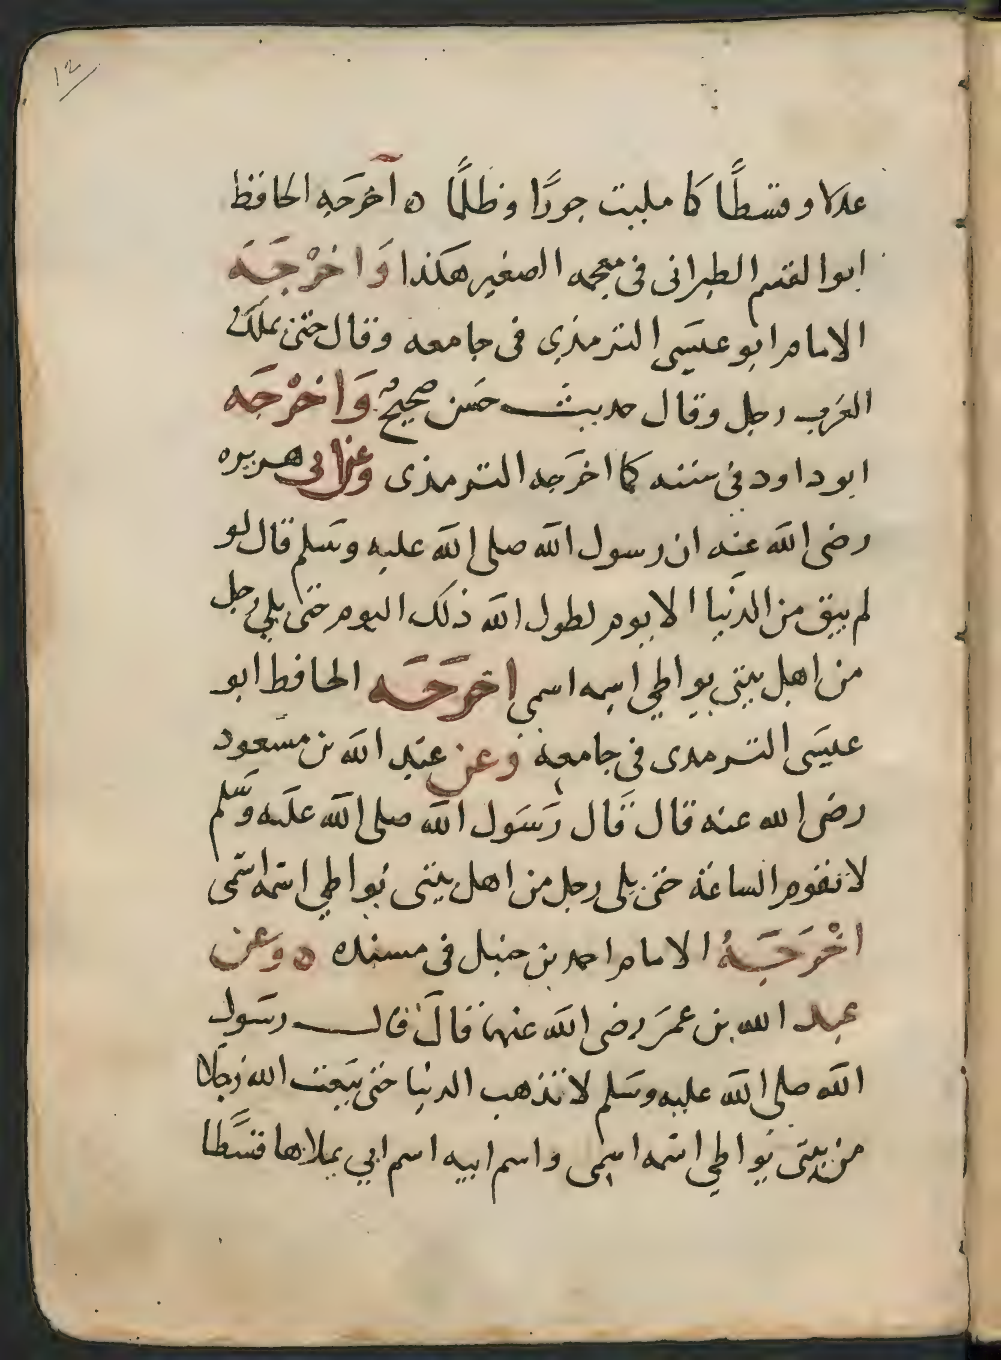 ١٢
عدلا وقسطًا كما مليت جورًا وظلمًا ه أخرَجه الحافظ
ابوا لقسم الطبراني في معجمه الصغير هكذا وَاخرْجَهَ
الامام ابو عيسَى الترمذي في جامعه وقال حتى يملك
العَرب رجل وقال حديث حسَن صحيحٌ وَاخرْجَه
ابو داود في سننه كما اخرَجه الترمذى وعن ابى هريره
رضى الله عنه ان رسول الله صلى الله عليه وسَلم قال لو
لم يبق من الدنيا الا يوم لطول الله ذلك اليوم حتى يلي رجل
من اهل بيتى يواطي اسمه اسمى اخرَجَه الحافظ ابو
عيسَى الترمدى في جامعه وعن عبد الله بن مسَعود
رضى الله عنه قال قال رَسَول الله صلى الله علَيه وسَّلم
لا تقوم الساعة حتى يلى رجل من اهل بيتى يواطي اسمه اسمى
اخْرَجَهُ الامام احمد بن حنبل في مسنده ه وَعن
عبد الله بن عمَر رضى الله عنهما قالَ قال رسَول
الله صلى الله عليه وسَلم لا تذهب الدنيا حتى يبَعث الله رَجلا
من بيتى يواطي اسمه اسمى واسم ابيه اسم ابي يملاها قسًطا